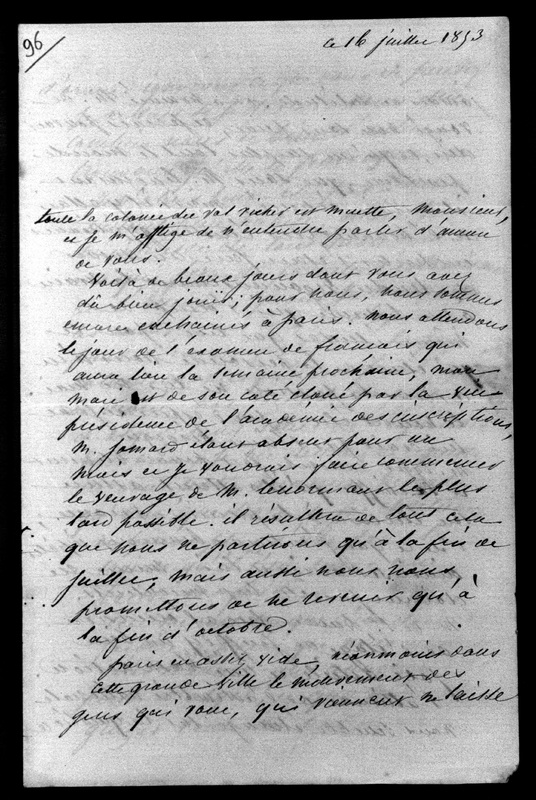 96
ce 16 juillet 1853
toute la colonie du val richer est muette, monsieur,
et je m'afflige de n'entendre parler d'aucun
de vous.
Voilà de beaux jours dont vous avez
dû bien jouir; pour nous, nous sommes
encore enchainés à paris. nous attendons
le jour de l'examen de francais qui
aura lieu la semaine prochaine, mon
mari est de son coté cloué par la vice
présidence de l'académie des inscriptions,
M. Jomard étant absent pour un
mois et je voudrais faire commencer
le veuvage de M. Lenormant le plus
tard possible. il résultera de tout cela
que nous ne partirons qu'à la fin de
Juillet, mais aussi nous nous
promettons de ne revenir qu'à
la fin d'octobre.
paris est assez vide, néanmoins dans
cette grande ville le mouvement des
gens qui vont, qui viennent ne laisse